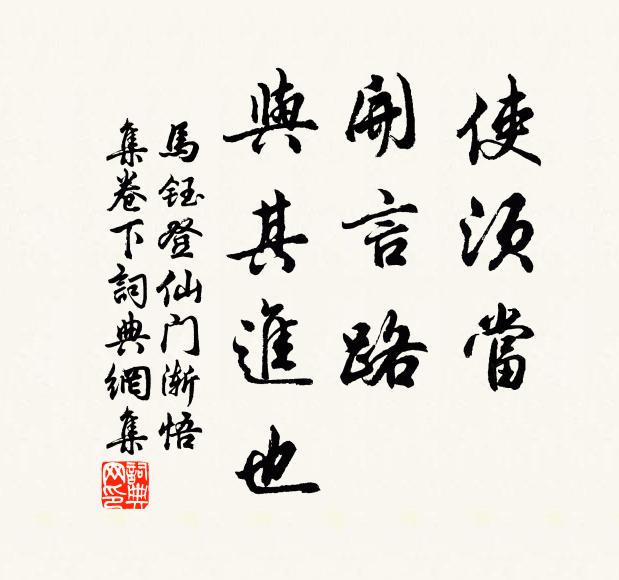 使须當
開言路
與其進也
馬鈺登仙门渐悟
集卷下詞典網集
詞典网印